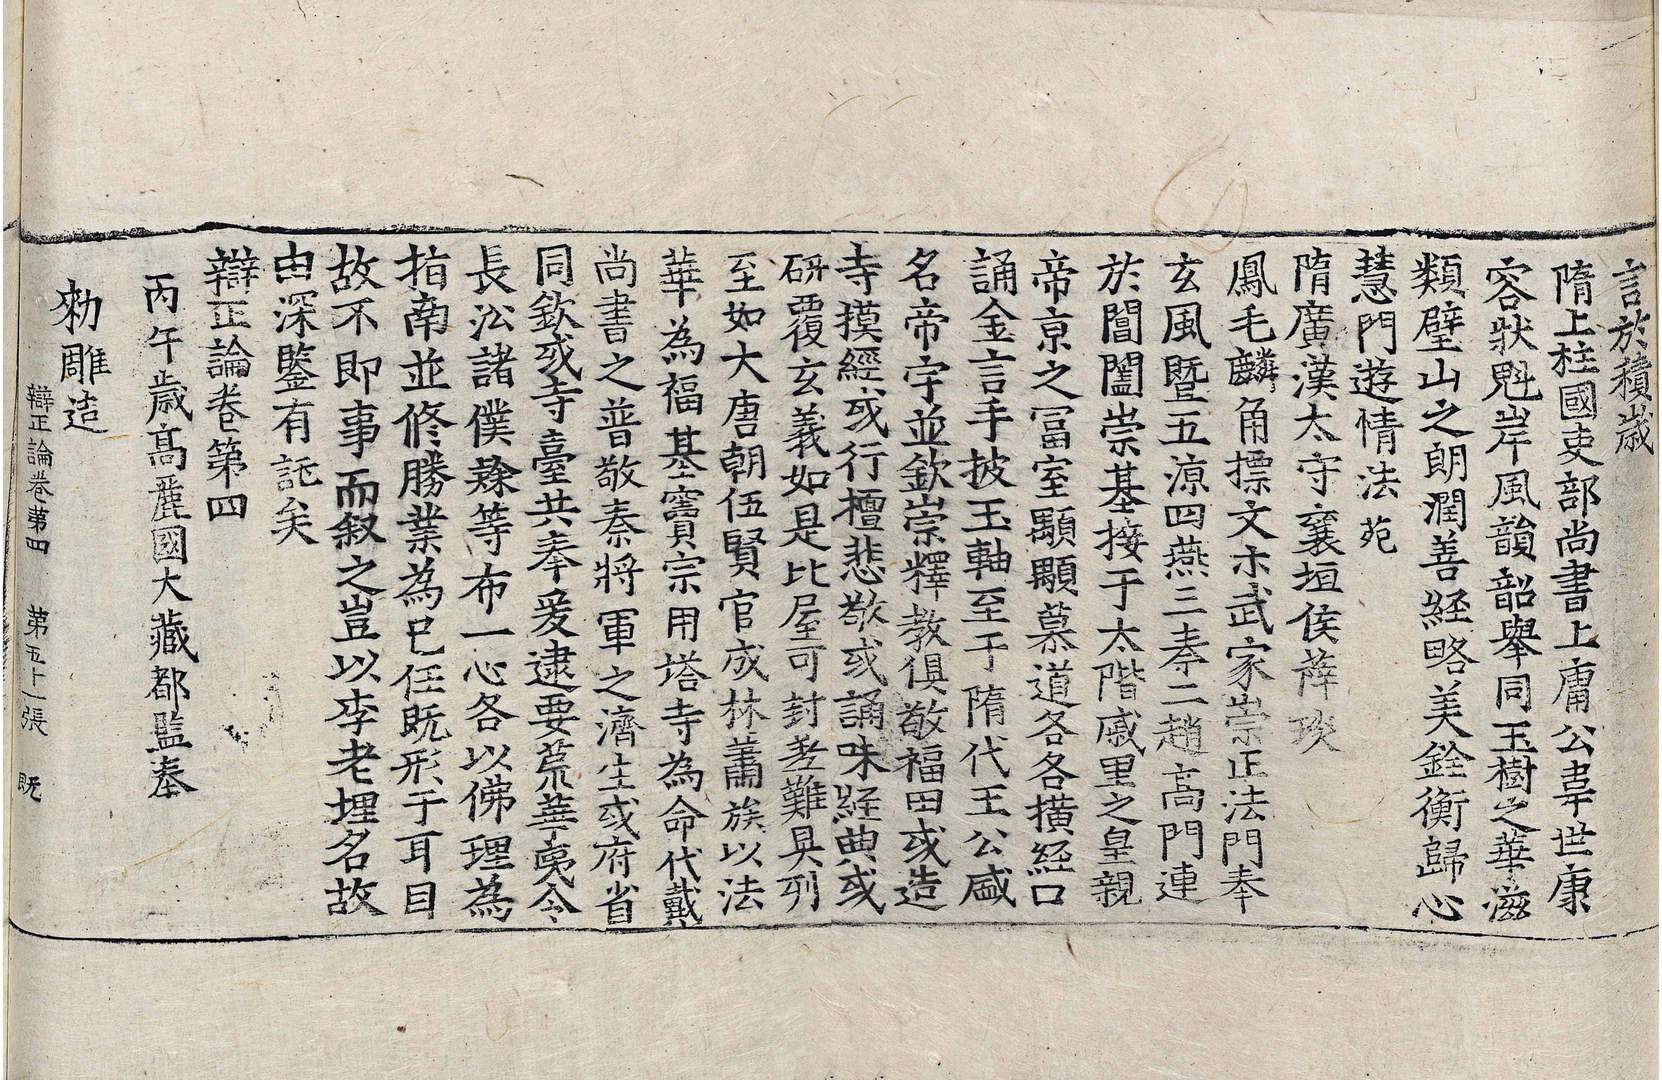 言於積歲
隋上柱國吏部尚書上庸公韋世康
容狀魁岸風韻韶舉同玉樹之華滋
類璧山之朗潤善經略美銓衡歸心
慧門遊情法苑
隋廣漢太守襄垣侯薛琰
鳳毛麟角摽文木武家崇正法門奉
玄風暨五涼四燕三秦二趙高門連
於閶闔崇基接于太階戚里之皇親
帝京之冨室顒顒慕道各各橫經口
誦金言手披玉軸至于隋代王公咸
名帝宇並欽崇釋教俱敬福田或造
寺摸經或行檀悲敬或誦味經典或
研覆玄義如是比屋可封差難具列
至如大唐朝伍賢官成林蕭族以法
華為福基竇宗用塔寺為命代戴
尚書之普敬秦將軍之濟生或府省
同欽或寺臺共奉爰逮要荒華夷令
長㳂諸僕𨽻等布一心各以佛理為
指南並修勝業為已任既形于耳目
故不即事而叙之豈以李老埋名故
由深鑒有託矣
辯正論卷第四
丙午歲高麗國大藏都監奉
勑雕造
辯正論卷第四 第五十一張 既